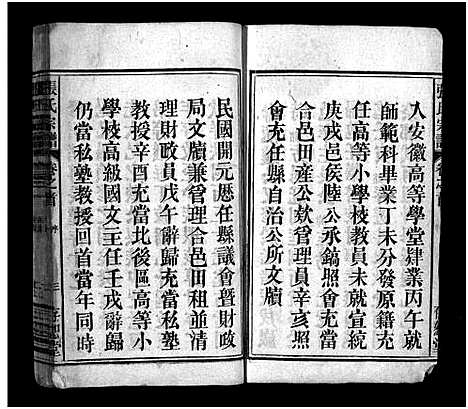 入安徽高等學堂肄業丙午就
師範科畢業丁未分發原籍充
任高等小學校教員未就宣統
庚戌邑侯陸公承鎬照會充當
合邑田産公欵管理員辛亥照
會充任縣自治公所文牘
民國開元歷任縣議會暨財政
局文牘兼管理合邑田租並清
理財政員戊午辭歸充當私塾
教授辛酉充當北後區高等小
學校高級國文主任壬戌辭歸
仍當私塾教授回首當年同時
張氏宗譜
卷之首